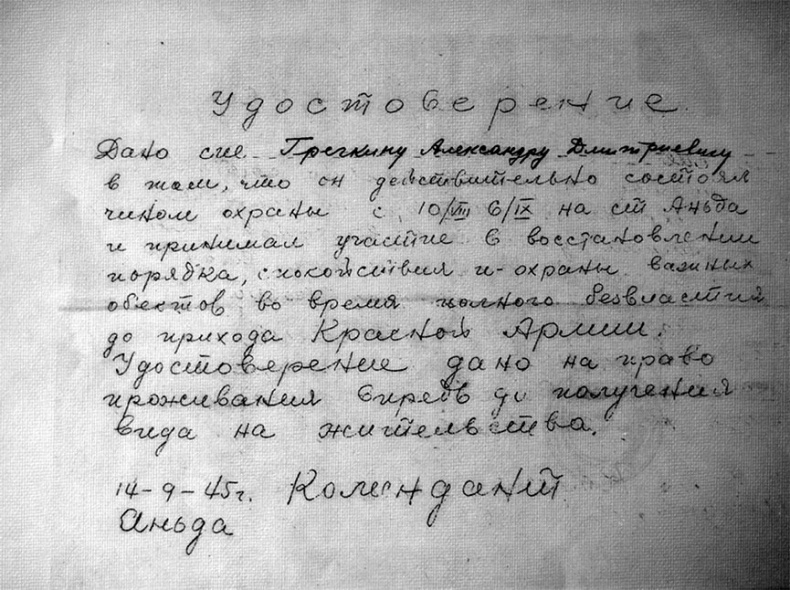 Удостоверение
Дано сие Гречкину Александру Дмитриевичу
в том, что он действительно состоял
чином охраны с 10/VIII 6/IX на ст Аньда
и принимал участие в восстановлении
порядка, спокойствия и охраны важных
обектов во время полного безвластия
до прихода Красной Армии.
Удостоверение дано на право
проживания впредь до получения
вида на жительства.
14-9-45г. Комендант
Аньда